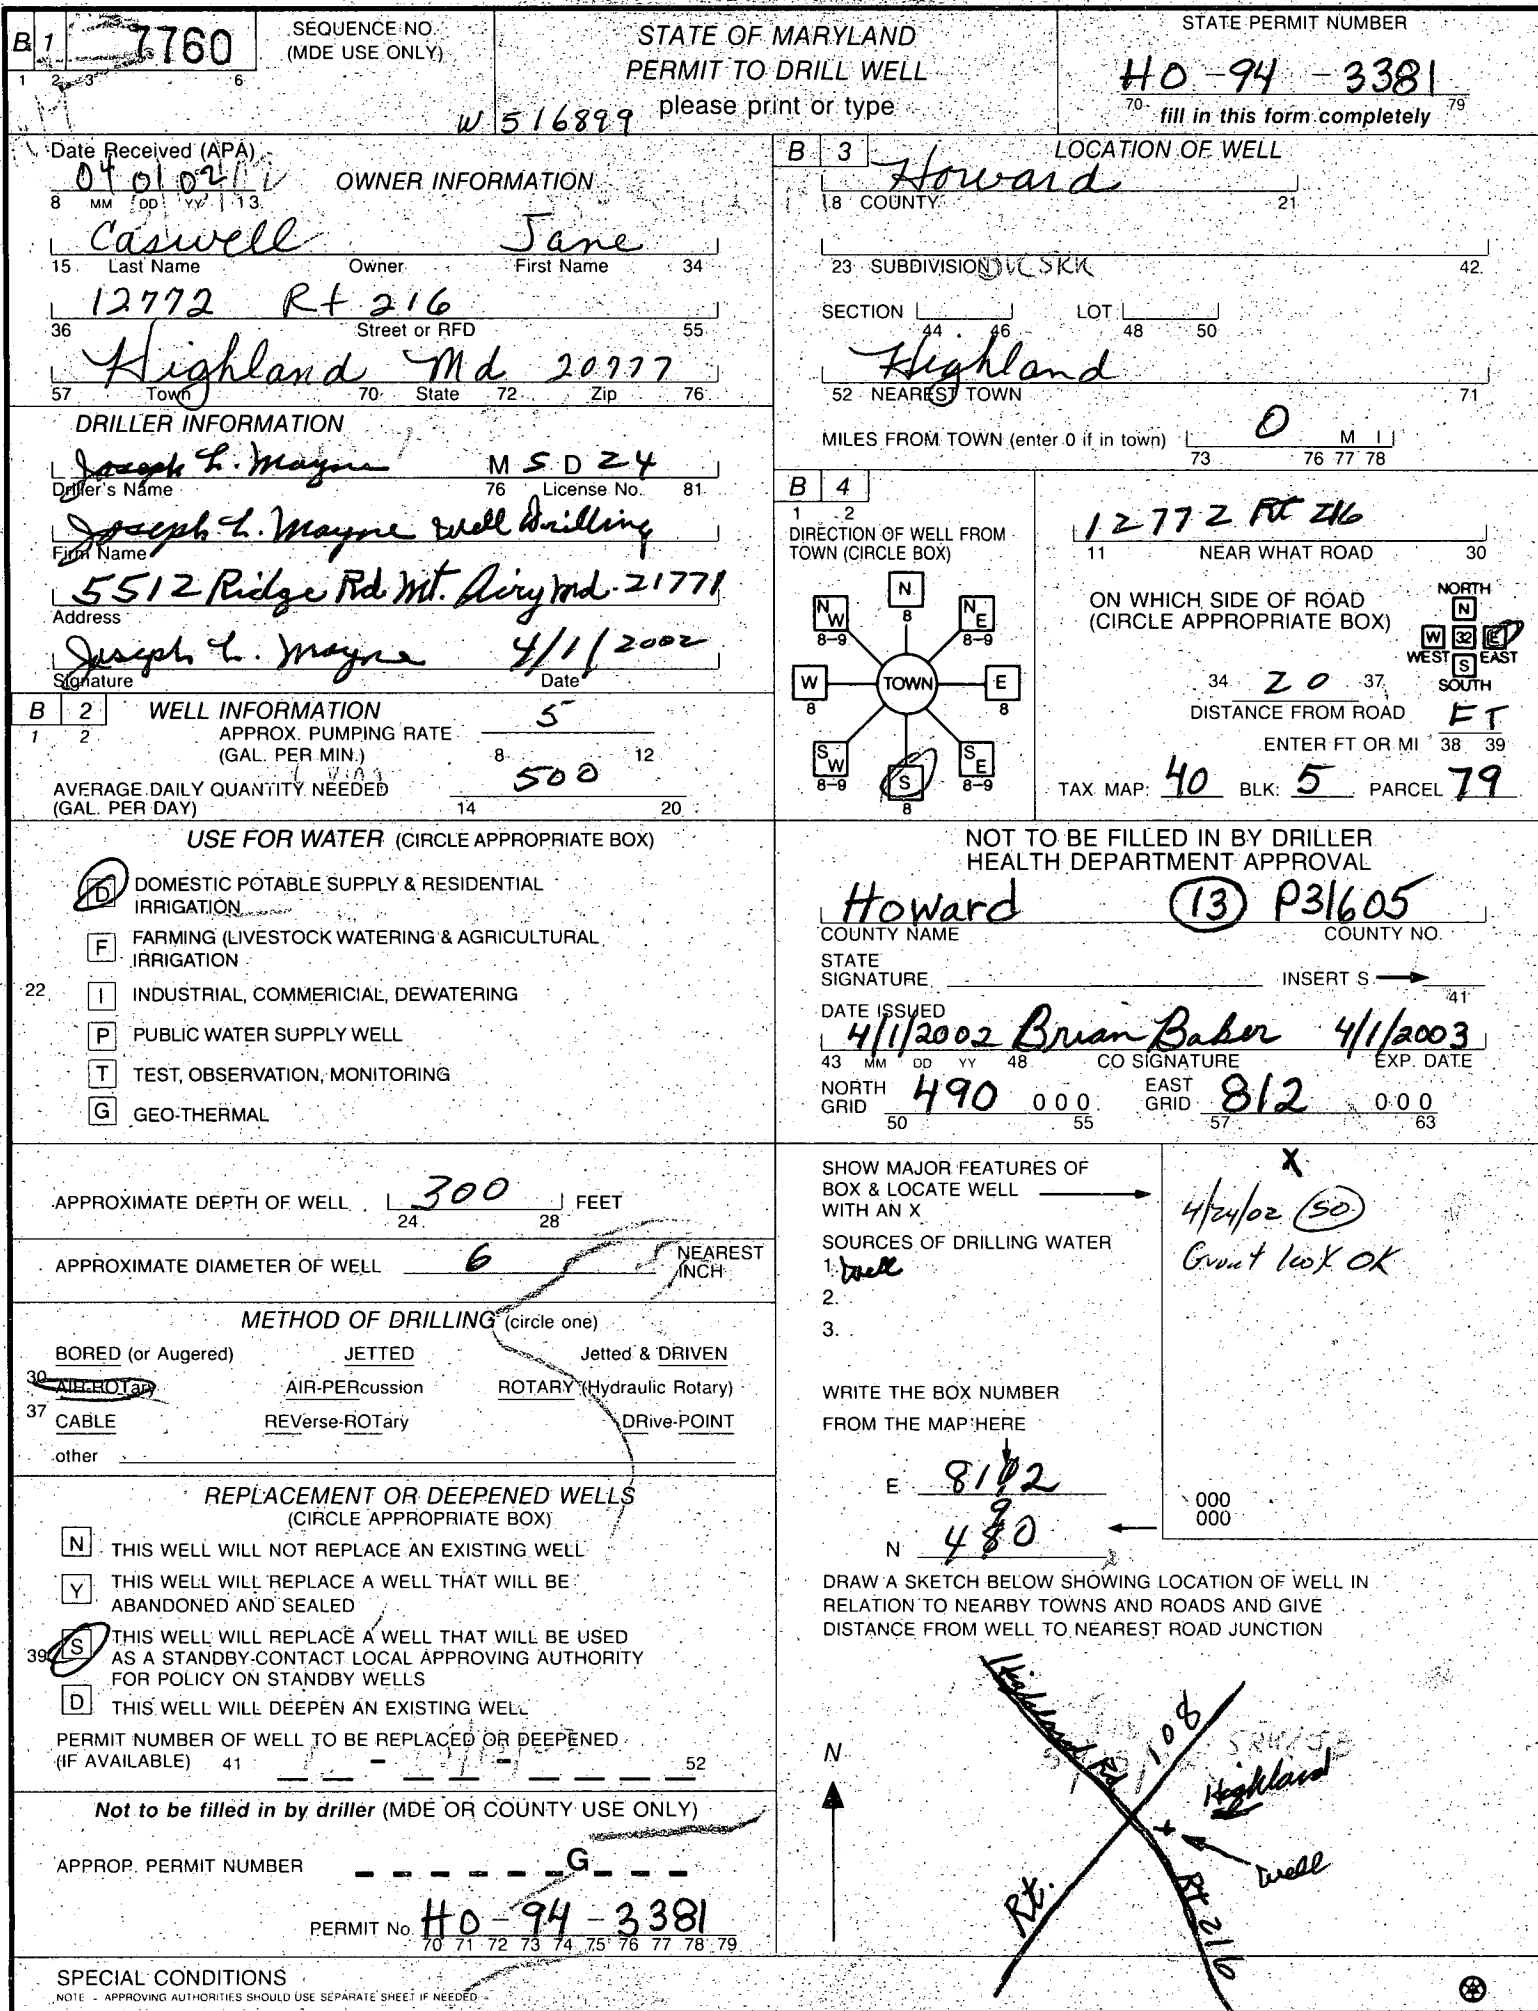 B 1 7760
1 2 3 6
SEQUENCE NO.
(MDE USE ONLY)
STATE OF MARYLAND
PERMIT TO DRILL WELL
please print or type
W 516899
STATE PERMIT NUMBER
HO - 94 - 3381
70 79
fill in this form completely
Date Received (APA)
04 01 02
8 MM DD YY 13
OWNER INFORMATION
Caswell Jane
15 Last Name Owner First Name 34
12772 Rt 216
36 Street or RFD 55
Highland Md 20777
57 Town 70 State 72 Zip 76
DRILLER INFORMATION
Joseph L. Mayne M S D 24
Driller's Name 76 License No. 81
Joseph L. Mayne Well Drilling
Firm Name
5512 Ridge Rd Mt. Airy Md. 21771
Address
Joseph L. Mayne 4/1/2002
Signature Date
B 2 WELL INFORMATION
1 2
APPROX. PUMPING RATE 5
(GAL. PER MIN.) 8 12
AVERAGE DAILY QUANTITY NEEDED 500
(GAL. PER DAY) 14 20
USE FOR WATER (CIRCLE APPROPRIATE BOX)
D DOMESTIC POTABLE SUPPLY & RESIDENTIAL
IRRIGATION
F FARMING (LIVESTOCK WATERING & AGRICULTURAL
IRRIGATION
22 I INDUSTRIAL, COMMERICIAL, DEWATERING
P PUBLIC WATER SUPPLY WELL
T TEST, OBSERVATION, MONITORING
G GEO-THERMAL
APPROXIMATE DEPTH OF WELL 300 FEET
24 28
APPROXIMATE DIAMETER OF WELL 6 NEAREST
INCH
METHOD OF DRILLING (circle one)
BORED (or Augered) JETTED Jetted & DRIVEN
30 AIR-ROTary AIR-PERcussion ROTARY (Hydraulic Rotary)
37 CABLE REVerse-ROTary DRive-POINT
other
REPLACEMENT OR DEEPENED WELLS
(CIRCLE APPROPRIATE BOX)
N THIS WELL WILL NOT REPLACE AN EXISTING WELL
Y THIS WELL WILL REPLACE A WELL THAT WILL BE
ABANDONED AND SEALED
39 S THIS WELL WILL REPLACE A WELL THAT WILL BE USED
AS A STANDBY-CONTACT LOCAL APPROVING AUTHORITY
FOR POLICY ON STANDBY WELLS
D THIS WELL WILL DEEPEN AN EXISTING WELL
PERMIT NUMBER OF WELL TO BE REPLACED OR DEEPENED
(IF AVAILABLE) 41 - - 52
Not to be filled in by driller (MDE OR COUNTY USE ONLY)
APPROP. PERMIT NUMBER G
PERMIT No. HO - 94 - 3381
70 71 72 73 74 75 76 77 78 79
SPECIAL CONDITIONS
NOTE - APPROVING AUTHORITIES SHOULD USE SEPARATE SHEET IF NEEDED
B 3 LOCATION OF WELL
Howard
8 COUNTY 21
23 SUBDIVISION 42
SECTION LOT
44 46 48 50
Highland
52 NEAREST TOWN 71
MILES FROM TOWN (enter 0 if in town) 0 M I
73 76 77 78
B 4
1 2
DIRECTION OF WELL FROM
TOWN (CIRCLE BOX)
N
8
NW NE
8-9 8-9
W TOWN E
8 8
SW SE
8-9 8-9
S
8
12772 Rt 216
11 NEAR WHAT ROAD 30
ON WHICH SIDE OF ROAD
(CIRCLE APPROPRIATE BOX)
NORTH
N
W 32 E
WEST EAST
S
SOUTH
34 20 37
DISTANCE FROM ROAD FT
ENTER FT OR MI 38 39
TAX MAP: 40 BLK: 5 PARCEL 79
NOT TO BE FILLED IN BY DRILLER
HEALTH DEPARTMENT APPROVAL
Howard 13 P31605
COUNTY NAME COUNTY NO.
STATE
SIGNATURE INSERT S
41
DATE ISSUED
4/1/2002 Brian Baker 4/1/2003
43 MM DD YY 48 CO SIGNATURE EXP. DATE
NORTH GRID 490 000 EAST GRID 812 000
50 55 57 63
SHOW MAJOR FEATURES OF
BOX & LOCATE WELL
WITH AN X
X
4/24/02 SO
Grout 100% OK
SOURCES OF DRILLING WATER
1. Well
2.
3.
WRITE THE BOX NUMBER
FROM THE MAP HERE
E 812
N 490
000
000
DRAW A SKETCH BELOW SHOWING LOCATION OF WELL IN
RELATION TO NEARBY TOWNS AND ROADS AND GIVE
DISTANCE FROM WELL TO NEAREST ROAD JUNCTION
N
Highland Rd
Rt. 108
Highland
Well
Rt 216